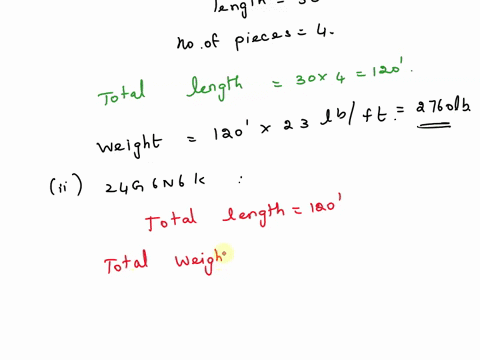 length = 30
no. of pieces = 4.
Total length = 30 x 4 = 120'.
Weight = 120' x 23 lb/ft. = 2760lb
(ii) 24G6N6k :
Total length = 120'
Total Weigh